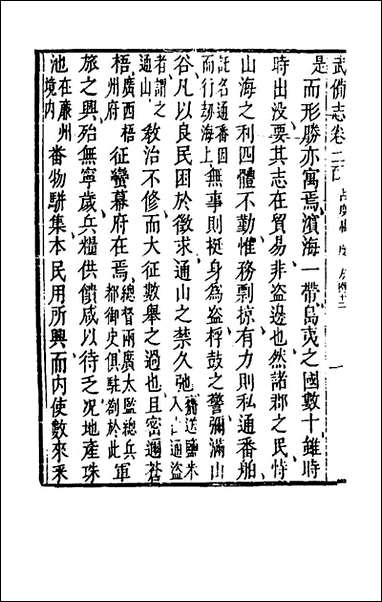 武備志卷二百 占度載 度
是而形勝亦寓焉濱海一帶島夷之國數十雖時
時出没要其志在貿易非盗邊也然諸郡之民恃
山海之利四體不勤惟務剽掠有力則私通番舶
託名通番因而行刼海上無事則挺身爲盗桴鼓之警彌滿山
谷凡以良民困於徵求通山之禁久弛入山通盗者謂之通山
教治不修而大征數舉之過也且密邇蒼
梧廣西梧州府征蠻幕府在焉總督兩廣太監總兵都御史俱駐劄於此軍
旅之興殆無寧歲兵糧供饋咸以待乏况地產珠
池在亷州境内番物駢集本民用所興而内使數來采